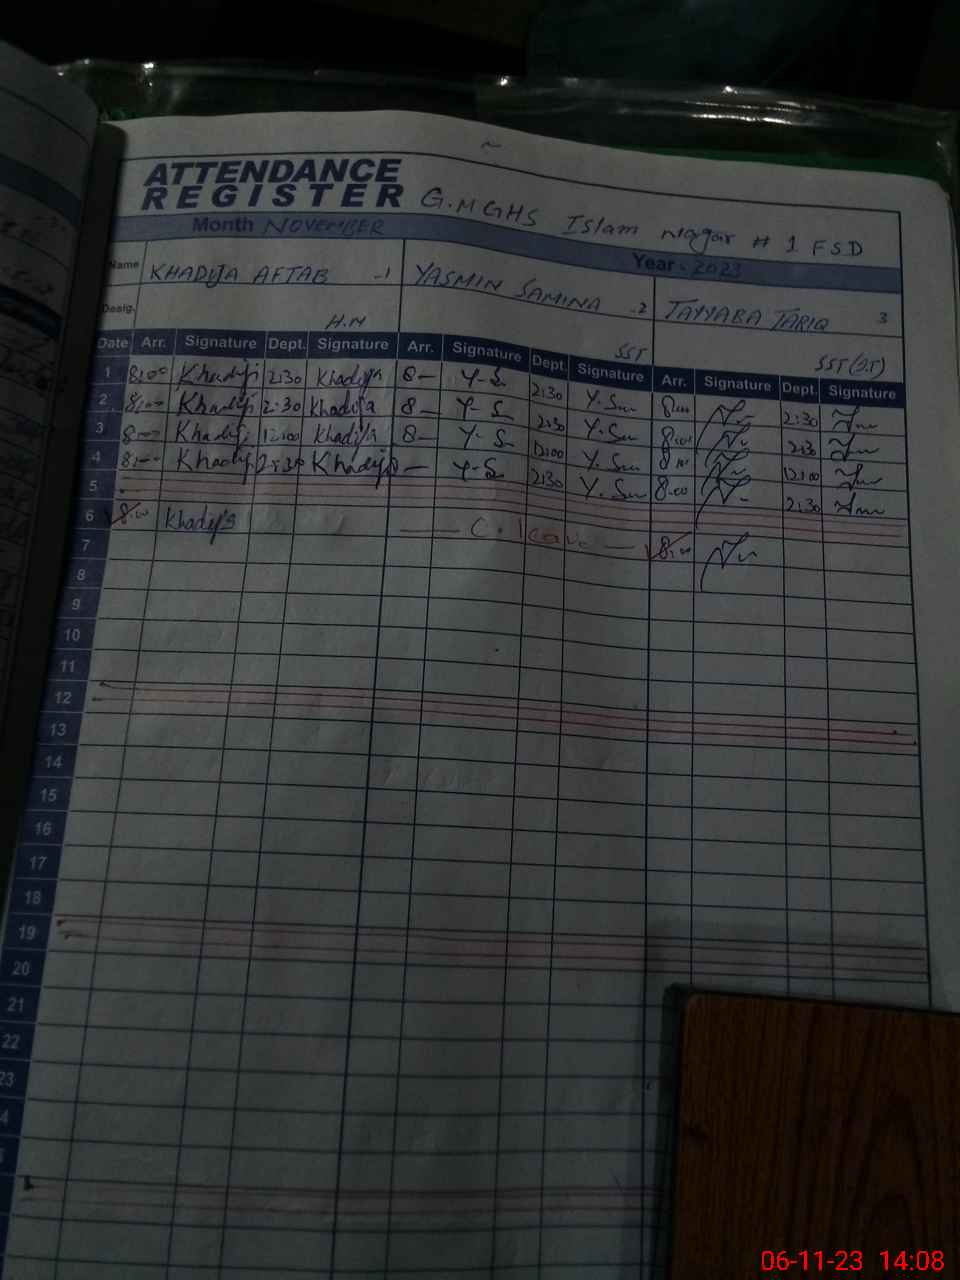 ATTENDANCE
REGISTER G.MGHS Islam Nagar # 1 FSD
Month NOVEMBER Year - 2023
Name KHADIJA AFTAB -1 YASMIN SAMINA -2 TAYYABA TARIQ 3
Desig. H.M SST SST(S.T)
Date Arr. Signature Dept. Signature Arr. Signature Dept. Signature Arr. Signature Dept. Signature
1 8:00 Khadija 2:30 Khadija 8— Y-S 2:30 Y.S 8:00 2:30
2 8:00 Khadija 2:30 Khadija 8— Y-S 2:30 Y.S 8:00 2:30
3 8:00 Khadija 12:00 Khadija 8— Y-S 12:00 Y.S 8:00 12:00
4 8:00 Khadija 2:30 Khadija 8— Y-S 2:30 Y.S 8:00 2:30
5
6 8:00 Khadija — C. leave — 8:00
7
8
9
10
11
12
13
14
15
16
17
18
19
20
21
22
23
4
06-11-23 14:08